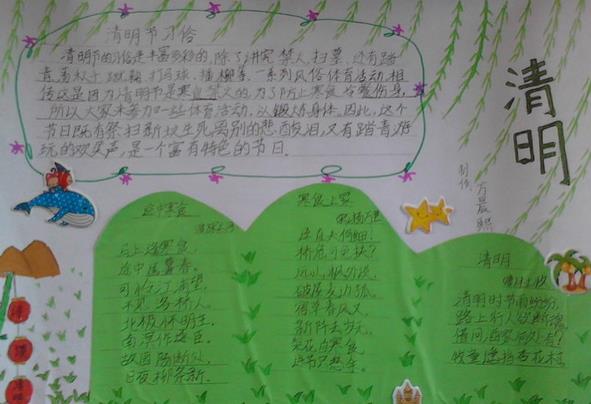 清明节习俗
清明节的习俗是丰富多彩的,除了讲究禁火、扫墓,还有踏
青、荡秋千、蹴鞠、打马球、插柳等一系列风俗体育活动。相
传这是因为清明节是寒食禁火的,为了防止寒食冷餐伤身,
所以大家来参加一些体育活动,以锻炼身体。因此,这个
节日既有祭扫新坟生死离别的悲酸泪,又有踏青游
玩的欢笑声,是一个富有特色的节日。
清明
制作
途中寒食
马上逢寒食,
途中属暮春。
可怜江浦望,
不见洛桥人。
北极怀明主,
南溟作逐臣。
故园肠断处,
日夜柳条新。
寒食上冢
宋 杨万里
径直夫何细!
桥危可免扶?
远山枫外淡,
破屋麦边孤。
宿草春风又,
新阡去岁无。
梨花自寒食,
进节只愁予。
清明
唐 杜牧
清明时节雨纷纷,
路上行人欲断魂。
借问酒家何处有?
牧童遥指杏花村。